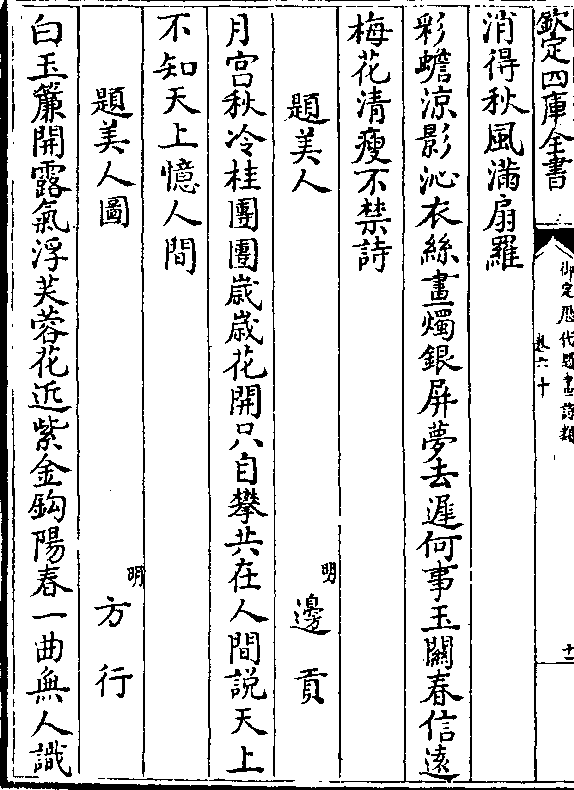 欽定四庫全書
御定歷代題畫詩類
卷六十
十一
消得秋風滿扇羅
彩蟾涼影沁衣絲畫燭銀屏夢去遲何事玉關春信遠
梅花清瘦不禁詩
題美人
明
邊貢
月宮秋冷桂團團歲歲花開只自攀共在人間說天上
不知天上憶人間
題美人圖
明
方行
白玉簾開露氣浮芙蓉花近紫金鈎陽春一曲無人識